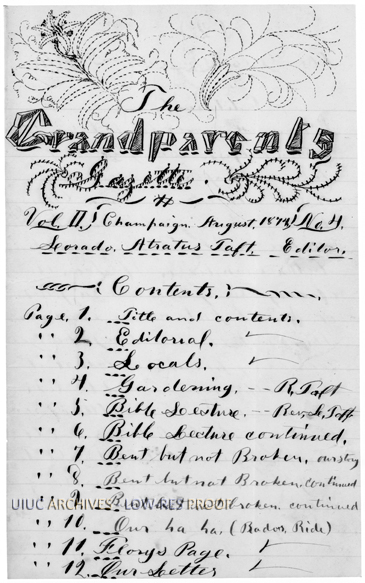 The
Grandparents
Gazette.
Vol II. Champaign. August, 1872 No. 4.
Lorado. Atratus Taft, Editor.
Contents.
Page. 1. Title and contents.
" " 2. Editorial.
" " 3. Locals.
" " 4. Gardening. -- R, Taft
" " 5. Bible Lecture. -- Rev, L, Taft
" " 6. Bible Lecture continued,
" " 7. Bent but not Broken, our story
" " 8. Bent but not Broken, continued
" " 9. broken, continued
" " 10. Our ha ha, (Rados, Ride)
" " 11. Florys Page.
" " 12. Our Letter
UIUC ARCHIVES LOW-RES PROOF